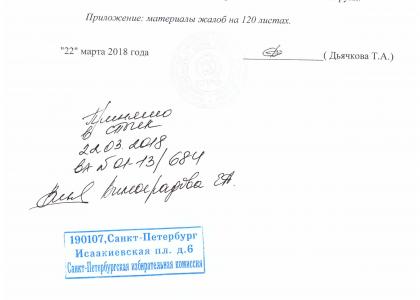 Приложение: материалы жалоб на 120 листах.
"22" марта 2018 года ( Дьячкова Т.А.)
Принято
22.03.2018
вх №01-13/684
Виноградова
190107,Санкт-Петербург
Исаакиевская пл. д.6
Санкт-Петербургская избирательная комиссия